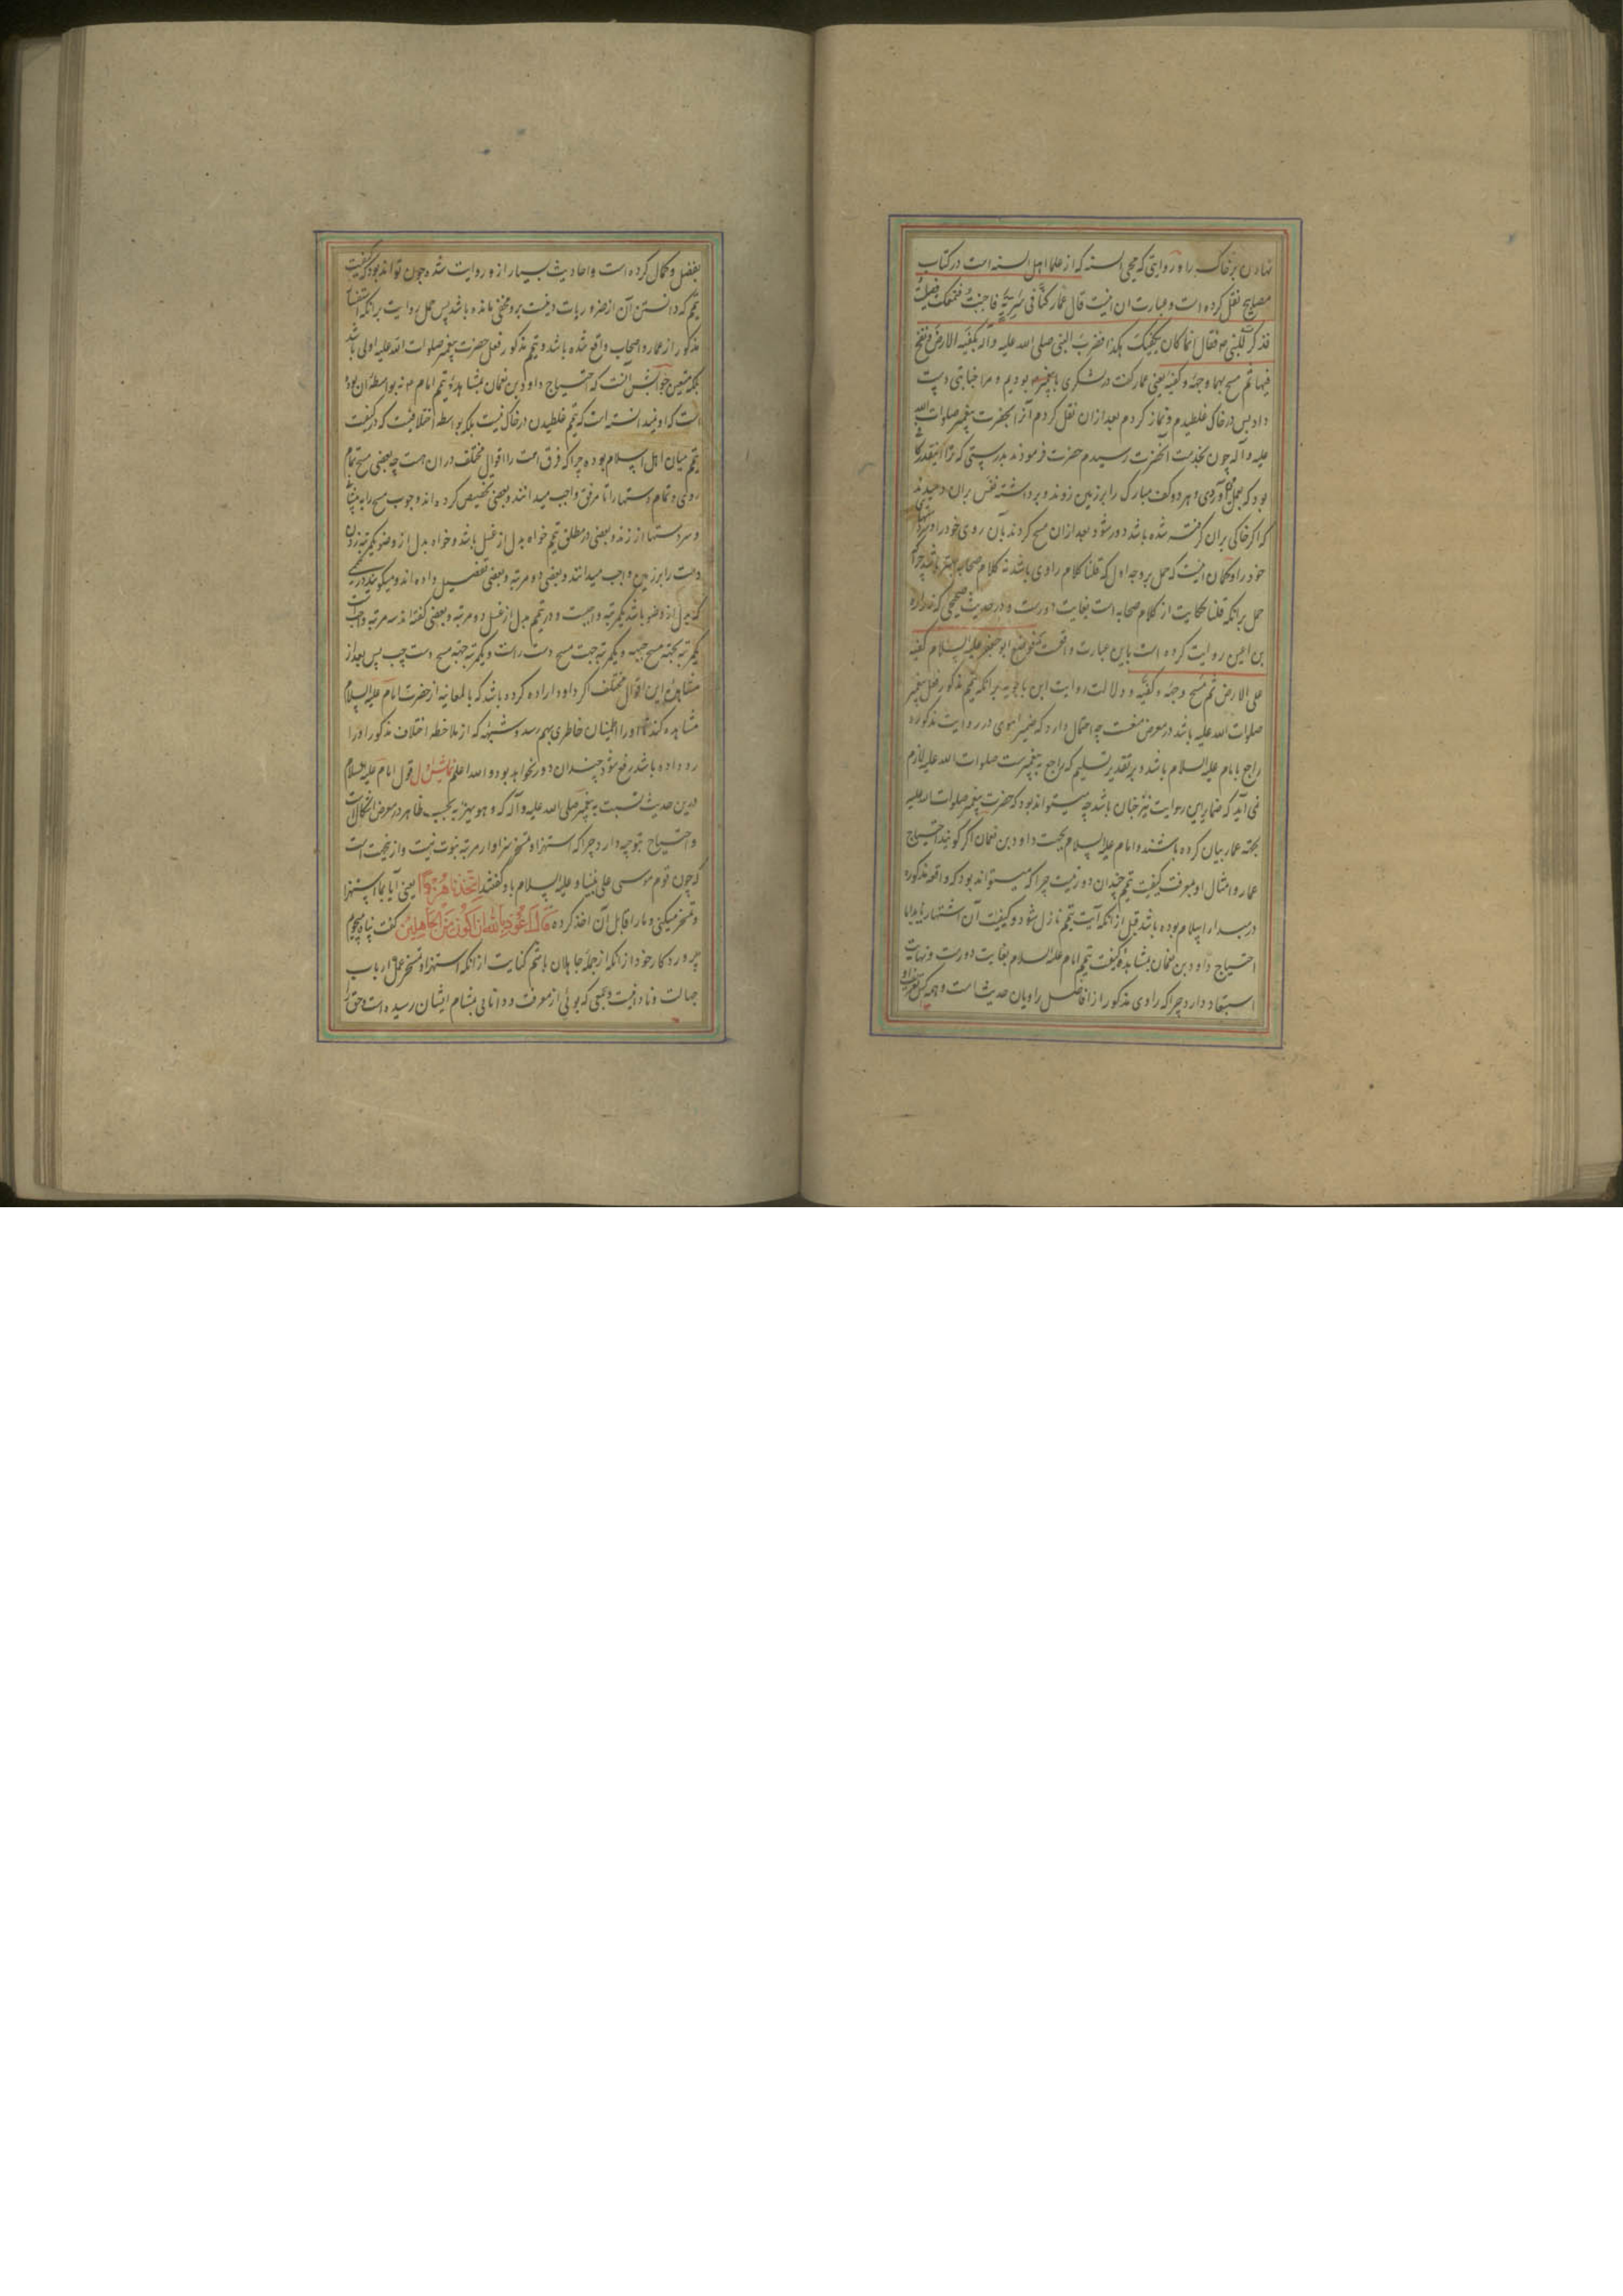 نهادن بر خاک را و روایتی که محیی السنه که از علما اهل السنه است در کتاب
مصابیح نقل کرده است و عبارت ان اینست قال عمار کنا فی سریة فاجنبت فتمعکت فصلیت
فذکرت للنبی ص فقال انما کان یکفیک هکذا فضرب النبی صلی الله علیه و آله بکفیه الارض و نفخ
فیهما ثم مسح بهما وجهه و کفیه یعنی عمار گفت در لشکری با پیغمبر بودیم و مرا جنابتی دست
داد پس در خاک غلطیدم و نماز کردم بعد از ان نقل کردم آنرا بحضرت پیغمبر صلوات الله
علیه و آله چون بخدمت آنحضرت رسیدم حضرت فرمودند بدرستی که ترا اینقدر کافی
بود که بعمل آوردی و هر دو کف مبارک را بر زمین زدند و برداشته نفس بران دمیدند
که اگر خاکی بران گرفته شده باشد دور شود بعد ازان مسح کردند بآن روی خود را و دستهای
خود را و گمان اینست که حمل بر وجه اول که قلنا کلام راوی باشد نه کلام صحابه بهتر باشد چرا که
حمل برانکه قلنا حکایت از کلام صحابه است بغایت دورست و در حدیث صحیحی که زراره
بن اعین روایت کرده است باین عبارت واقعست که فوضع ابو جعفر علیه السلام کفیه
علی الارض ثم مسح وجهه و کفیه و دلالت روایت ابن بابویه برانکه تیمم مذکور فعل پیغمبر
صلوات الله علیه باشد در معرض منعست چه احتمال دارد که ضمیر اهوی در روایت مذکوره
راجع بامام علیه السلام باشد و بر تقدیر تسلیم که راجع به پیغمبرست صلوات الله علیه لازم
نمی آید که ضمایر این روایت نیز چنان باشد چه میتواند بود که حضرت پیغمبر صلوات الله علیه
بجهة عمار بیان کرده باشند و امام علیه السلام بجهت داود بن نعمان اگر گویند احتیاج
عمار و امثال او بمعرفت کیفیت تیمم چندان دور نیست چرا که میتواند بود که واقعه مذکوره
در مبدا اسلام بوده باشد قبل از انکه آیت تیمم نازل شود و کیفیت آن اشتهار یابد اما
احتیاج داود بن نعمان بمشاهده کیفیت تیمم امام علیه السلام بغایت دورست و نهایت
استبعاد دارد چرا که راوی مذکور از افاضل راویان حدیث است و همه کس تعریف او
بفضل و کمال کرده است و احادیث بسیار از و روایت شده چون تواند بود که کیفیت
تیمم که دانستن آن از ضروریات دینست برو مخفی مانده باشد پس حمل روایت برانکه استفسار
مذکور از عمار و اصحاب واقع شده باشد و تیمم مذکور فعل حضرت پیغمبر صلوات الله علیه اولی باشد
بلکه متعین جوابش آنست که احتیاج داود بن نعمان بمشاهده تیمم امام ع نه بواسطه آن بوده
است که او نمیدانسته است که تیمم غلطیدن در خاک نیست بلکه بواسطه اختلافیست که در کیفیت
تیمم میان اهل اسلام بوده چرا که فرق امت را اقوال مختلف دران هست چه بعضی مسح تمام
روی و تمام دستها را تا مرفق واجب میدانند و بعضی تخصیص کرده اند وجوب مسح را به پیشانی
و سر دستها از زند و بعضی در مطلق تیمم خواه بدل از غسل باشد و خواه بدل از وضو یکمرتبه زدن
دست را بر زمین واجب میدانند و بعضی دو مرتبه و بعضی تفصیل داده اند و میگویند در تیممی
که بدل از وضو باشد یکمرتبه واجبست و در تیمم بدل از غسل دو مرتبه و بعضی گفته اند سه مرتبه واجبست
یکمرتبه بجهة مسح جبهه و یکمرتبه جهت مسح دست راست و یکمرتبه جهة مسح دست چپ پس بعد از
مشاهده این اقوال مختلف اگر داود اراده کرده باشد که بالمعاینه از حضرت امام علیه السلام
مشاهده کند تا او را اطمینان خاطری بهم رسد و شبهه که از ملاحظه اختلاف مذکور او را
رو داده باشد رفع شود چندان دور نخواهد بود و الله اعلم نمایش اول قول امام علیه السلام
درین حدیث نسبت به پیغمبر صلی الله علیه و آله که و هو یهزء به بحسب ظاهر در معرض اشکالست
و احتیاج بتوجیه دارد چرا که استهزا و تمسخر سزاوار مرتبه نبوت نیست و ازینجهت است
که چون قوم موسی علی نبینا و علیه السلام باو گفتند اتتخذنا هزوا یعنی آیا بما استهزا
و تمسخر میکنی و ما را قابل آن اخذ کرده قال اعوذ بالله ان اکون من الجاهلین گفت پناه میجویم
بپروردگار خود از انکه از جمله جاهلان باشم کنایت از انکه استهزا و تمسخر عمل ارباب
جهالت و نادانیست و جمعی که بوئی از معرفت و دانائی بمشام ایشان رسیده است حق را